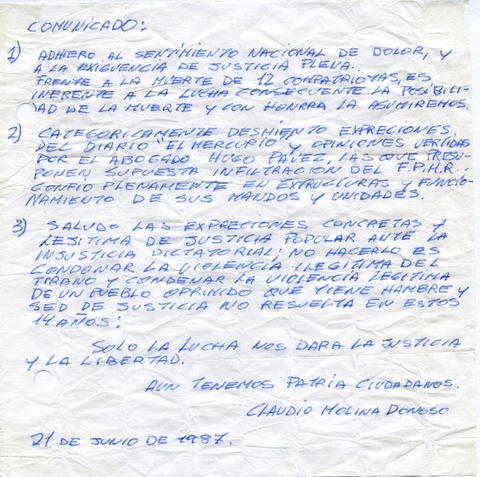 COMUNICADO:
1) ADHIERO AL SENTIMIENTO NACIONAL DE DOLOR, Y
A LA EXIGUENCIA DE JUSTICIA PLENA.
FRENTE A LA MUERTE DE 12 COMPATRIOTAS, ES
INERENTE A LA LUCHA CONSECUENTE LA POSIBILI-
DAD DE LA MUERTE Y CON HONRRA LA ASUMIREMOS.
2) CATEGORICAMENTE DESMIENTO EXPRECIONES
DEL DIARIO "EL MERCURIO" Y OPINIONES VERTIDAS
POR EL ABOGADO HUGO PAVEZ, LAS QUE PRESU-
PONEN SUPUESTA INFILTRACION DEL F.P.M.R.
CONFIO PLENAMENTE EN EXTRUCTURAS Y FUNCIO-
NAMIENTO DE SUS MANDOS Y UNIDADES.
3) SALUDO LAS EXPRECIONES CONCRETAS Y
LEJITIMA DE JUSTICIA POPULAR ANTE LA
INJUSTICIA DICTATORIAL; NO HACERLO ES
CONDONAR LA VIOLENCIA ILEGITIMA DEL
TIRANO Y CONDENAR LA VIOLENCIA LEGITIMA
DE UN PUEBLO OPRINIDO QUE TIENE HAMBRE Y
SED DE JUSTICIA NO RESUELTA EN ESTOS
14 AÑOS:
SOLO LA LUCHA NOS DARA LA JUSTICIA
Y LA LIBERTAD.
AUN TENEMOS PATRIA CIUDADANOS.
CLAUDIO MOLINA DONOSO
21 DE JUNIO DE 1987.